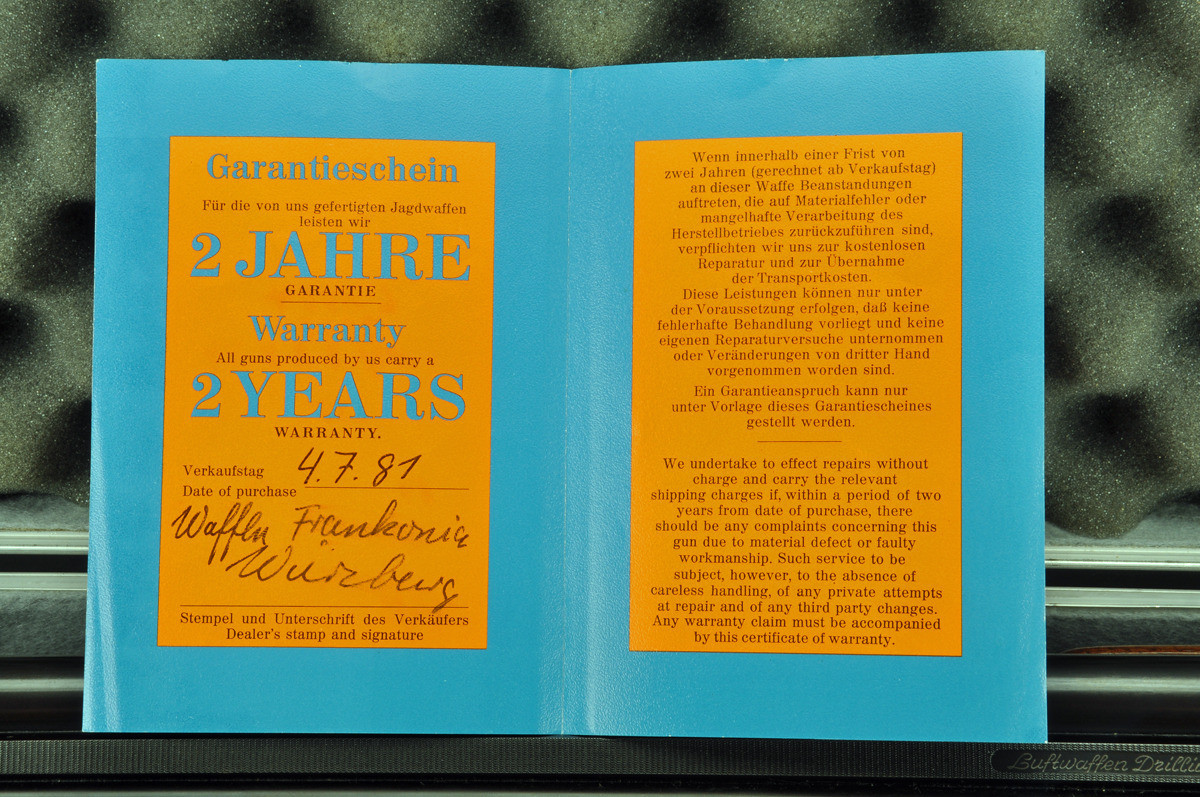 Garantieschein
Für die von uns gefertigten Jagdwaffen
leisten wir
2 JAHRE
GARANTIE
Warranty
All guns produced by us carry a
2 YEARS
WARRANTY.
Verkaufstag 4.7.81
Date of purchase
Waffen Frankonia
Würzburg
Stempel und Unterschrift des Verkäufers
Dealer's stamp and signature
Wenn innerhalb einer Frist von
zwei Jahren (gerechnet ab Verkaufstag)
an dieser Waffe Beanstandungen
auftreten, die auf Materialfehler oder
mangelhafte Verarbeitung des
Herstellbetriebes zurückzuführen sind,
verpflichten wir uns zur kostenlosen
Reparatur und zur Übernahme
der Transportkosten.
Diese Leistungen können nur unter
der Voraussetzung erfolgen, daß keine
fehlerhafte Behandlung vorliegt und keine
eigenen Reparaturversuche unternommen
oder Veränderungen von dritter Hand
vorgenommen worden sind.
Ein Garantieanspruch kann nur
unter Vorlage dieses Garantiescheines
gestellt werden.
We undertake to effect repairs without
charge and carry the relevant
shipping charges if, within a period of two
years from date of purchase, there
should be any complaints concerning this
gun due to material defect or faulty
workmanship. Such service to be
subject, however, to the absence of
careless handling, of any private attempts
at repair and of any third party changes.
Any warranty claim must be accompanied
by this certificate of warranty.
Luftwaffen Drilli